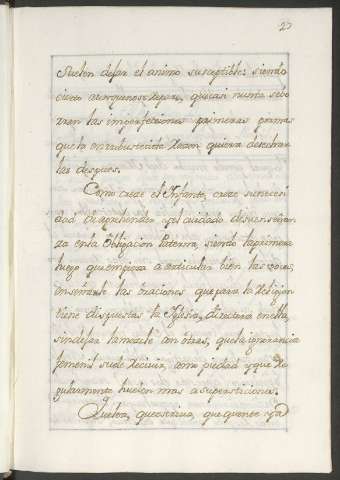 27
suelen dejar el animo susceptible: siendo
cierto aunque no se repare, que casi nunca se bo
rran las imperfeciones primeras
que la
las despues.
Como crece el Infante, crece su neces
dad de aprehender, y el cuidado de su enseñan
za en la Obligacion Paterna, siendo la primera
luego que empieza a articular bien las voces,
enseñarle las Oraciones que para la Religion
tiene dispuestas la Iglesia, directora en ella,
sin dejar la mezcle con otras, que la ignorancia
femenil suele decir, como piedad y que re
gularmente huelen mas a supersticiones.
que escriva, que